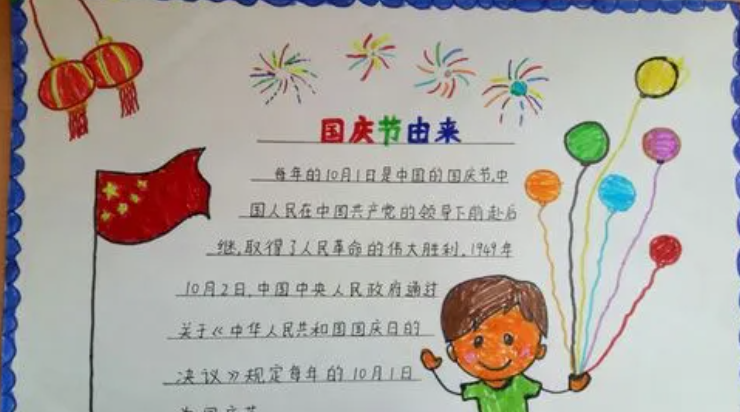 国庆节由来
每年的10月1日是中国的国庆节,中
国人民在中国共产党的领导下前赴后
继,取得了人民革命的伟大胜利,1949年
10月2日,中国中央人民政府通过
关于《中华人民共和国国庆日的
决议》规定每年的10月1日
为国庆节